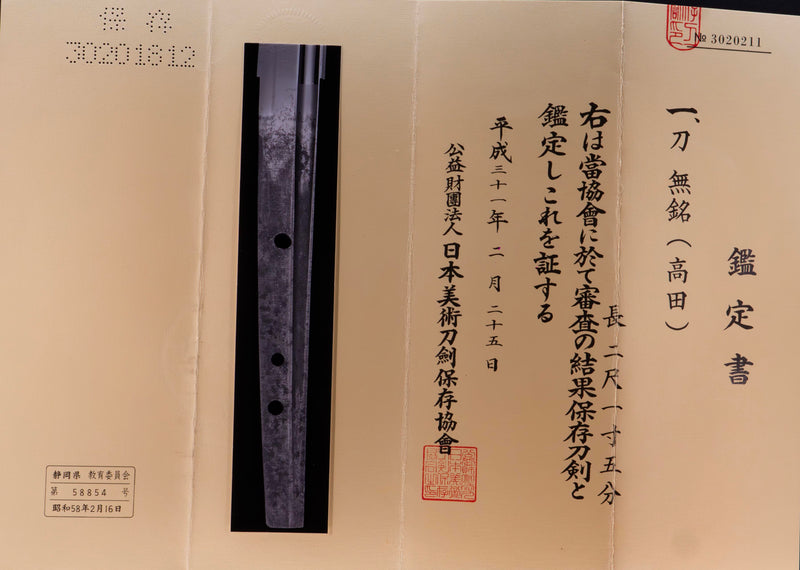 № 3020211
鑑定書
一、刀 無銘(高田)
長 二尺一寸五分
右は當協會に於て審査の結果保存刀剣と
鑑定しこれを証する
平成三十一年 二月 二十五日
公益財團法人 日本美術刀劍保存協會
保存
30201812
静岡県 教育委員会
第 58854 号
昭和58年2月16日